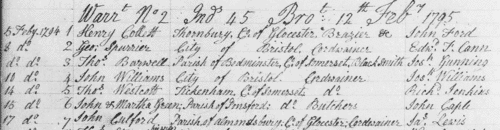 Warrt. No 2 Ind 45 Brot. 12th Feby 1795
5 Feby. 1794 1 Henry Collett Thornbury, C. of Glocester Brazier &c John Ford
8 do. 2 Geo. Spurrier City of Bristol Cordwainer Edwd. T. Cann
do do. 3 Thos. Barwell Parish of Bedminster, C. of Somerset, Black Smith Jos. Gunning
10 do. 4 John Williams City of Bristol. Cordwainer Jos. Williams
14 do 5 Thos. Westcott Tickenham, C. of Somerset do Richd. Jenkins
16 do 6 John & Martha Green; Parish of Pensford; do Butchers John Caple
17 do. 7 John Culford Parish of Almondsbury; C. of Glocester; Cordwainer Jas. Lewis